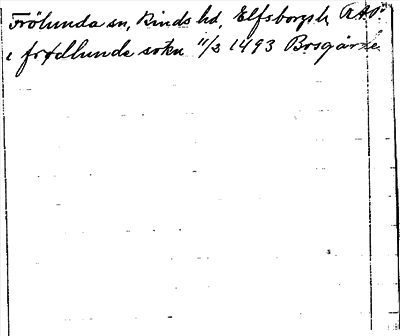 Frölunda sn, Kinds hd, Elfsborgsl. RAP.
i frødlunde sokn 11/3 1493 Bosgårde